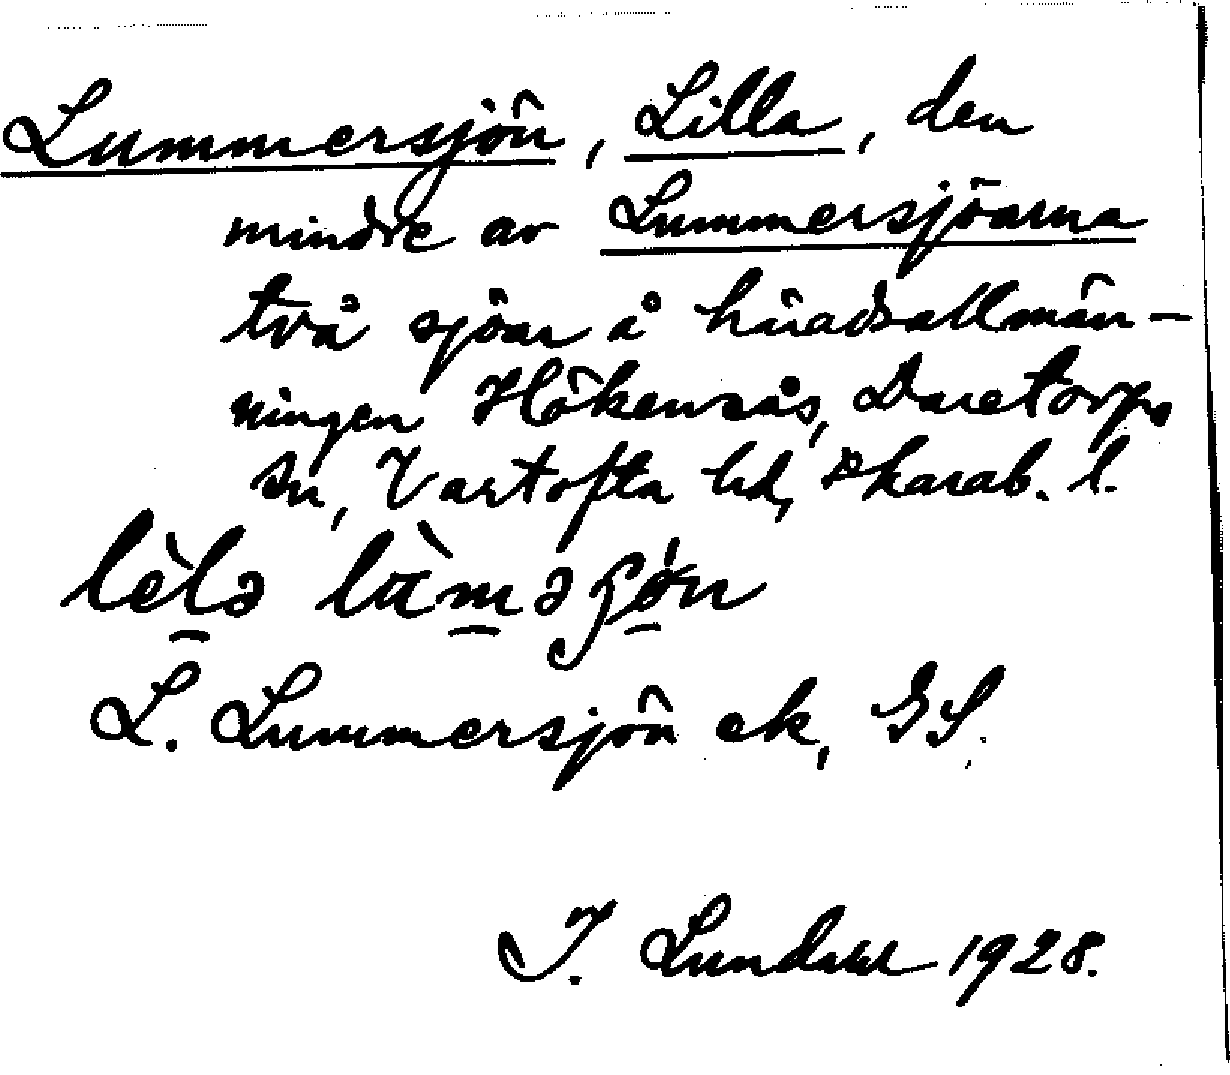 Lummersjön, Lilla, den
mindre av Lummersjöarna
två sjöar å häradsallmän-
ningen Hökensås, Daretorps
sn, Vartofta hd, Skarab. l.
lèlə lùməʃøn
L. Lummersjön ek, GS.
I. Lundahl 1928.